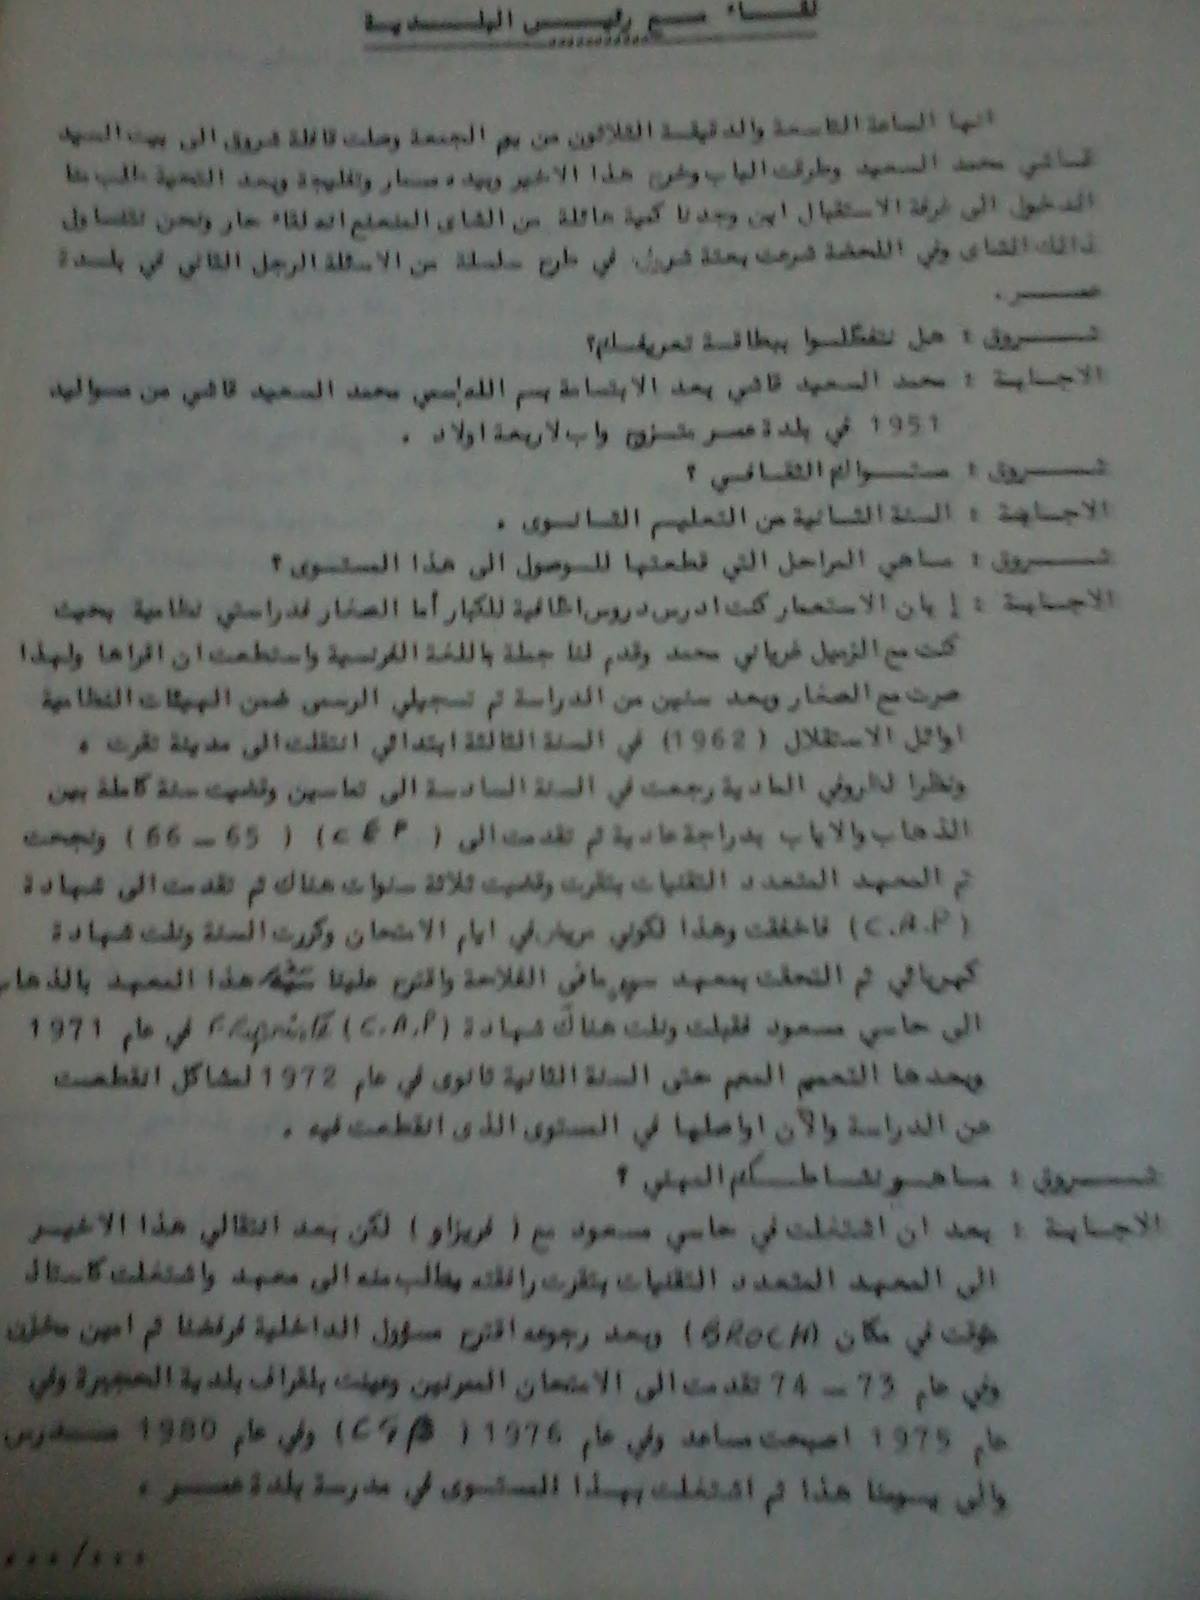 لقــاء مــع رئيــس البلــدية
انها الساعة التاسعة والدقيقة الثلاثون من يوم الجمعة وصلت قافلة شروق الى بيت السيد
قاشي محمد السعيد وطرقت الباب وخرج هذا الاخير وبيده مسمار وبعد التحية طلب منا
الدخول الى غرفة الاستقبال اين وجدنا كمية هائلة من الشاى المنعنع انه لقاء حار ونحن نتناول
ذالك الشاى وفي اللحضة شرعت بعثة شروق في طرح سلسلة من الاسئلة الرجل الثاني في بلدة
عمــر .
شــروق : هل تتفضلوا ببطاقة تعريفكم؟
الاجــابة : محمد السعيد قاشي بعد الابتسامة بسم الله إسمي محمد السعيد قاشي من مواليد
1951 في بلدة عمر متزوج واب لاربعة اولاد .
شــروق : مستــواكم الثقافــي ؟
الاجــابة : السنة الثــانية من التعليم الثــانــوى .
شــروق : ماهي المراحل التي قطعتها للــوصول الى هذا المستــوى ؟
الاجــابة : إبان الاستعمار كنت ادرس دروس اظافية للكبار أما الصغار فدراستي نظامية بحيث
كنت مع الزميل محمد وقدم لنا جملة باللغة الفرنسية واستطعت ان اقراها ولهذا
صرت مع الصغار وبعد سنين من الدراسة تم تسجيلي الرسمي ضمن الهيئات النظامية
اوائل الاستقلال (1962) في السنة الثالثة ابتدائي انتقلت الى مدينة تقرت .
ونظرا لظروفي المادية رجعت في السنة السادسة الى تماسين وقضيت سنة كاملة بين
الذهاب والاياب بدراجة عادية ثم تقدمت الى ( C E P ) ( 65 – 66 ) ونجحت
ثم المعهد المتعدد التقنيات بتقرت وقضيت ثلاثة سنوات هناك ثم تقدمت الى شهادة
(C.A.P) فاخفقت وهذا لكوني مريض في ايام الامتحان وكررت السنة ونلت شهادة
كهربائي ثم التحقت بمعهد سيدي مافي الفلاحة واقترح علينا هذا المعهد بالذهاب
الى حاسي مسعود فقبلت ونلت هناك شهادة (C.A.P) في عام 1971
وبعدها التعميم المهم حتى السنة الثانية ثانوى في عام 1972 لمشاكل انقطعت
عن الدراسة والآن اواصلها في المستوى الذى انقطعت فيه .
شــروق : ماهــو نشاطــكم المهني ؟
الاجــابة : بعد ان اشتغلت في حاسي مسعود مع ( فريزاو ) لكن بعد انتقالي هذا الاخيــر
الى المعهد المتعدد التقنيات بتقرت رافقته بطلب منه الى معهد واشتغلت كاستاذ
مؤقت في مكان (BROCH) وبعد رجوعه اقترح مسؤول الداخلية فرفضنا ثم امين مخزن
وفي عام 73 – 74 تقدمت الى الامتحان الممرنين وعينت بلقراف بلدية الحجيرة وفي
عام 1975 اصبحت مساعد وفي عام 1976 ( ) وفي عام 1980 مــدرس
والى يــومنا هذا ثم اشتغلت بهــذا المستــوى في مدرسة بلدة عمــر .
.../...